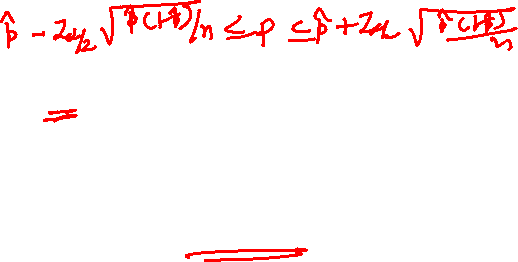 p̂ - Z_{α/2} √(p̂(1-p̂)/n) ≤ p ≤ p̂ + Z_{α/2} √(p̂(1-p̂)/n)
=